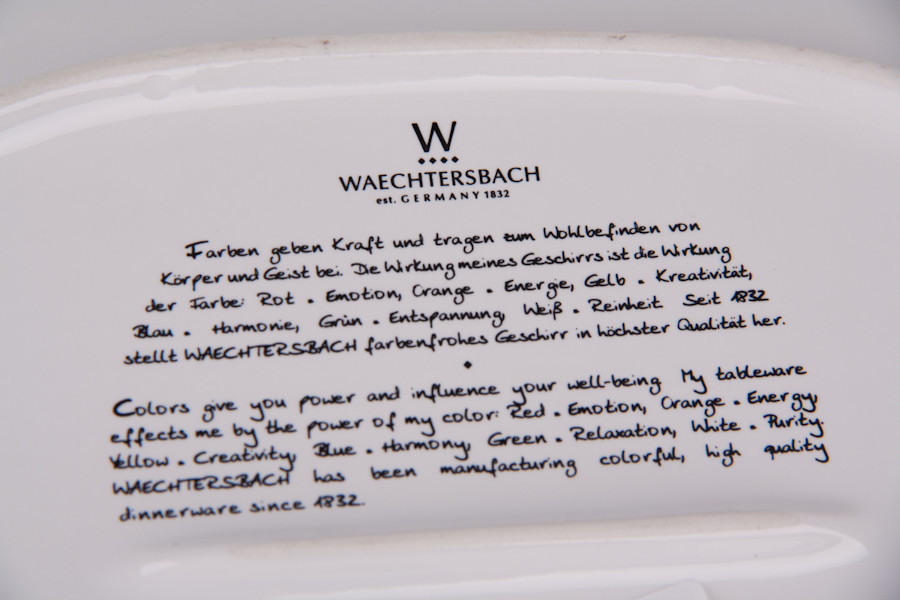 W
WAECHTERSBACH
est. GERMANY 1832
Farben geben Kraft und tragen zum Wohlbefinden von
Körper und Geist bei. Die Wirkung meines Geschirrs ist die Wirkung
der Farbe: Rot • Emotion, Orange • Energie, Gelb • Kreativität,
Blau • Harmonie, Grün • Entspannung, Weiß • Reinheit Seit 1832
stellt WAECHTERSBACH farbenfrohes Geschirr in höchster Qualität her.
Colors give you power and influence your well-being My tableware
effects me by the power of my color: Red • Emotion, Orange • Energy,
Yellow • Creativity, Blue • Harmony, Green • Relaxation, White • Purity.
WAECHTERSBACH has been manufacturing colorful, high quality
dinnerware since 1832.